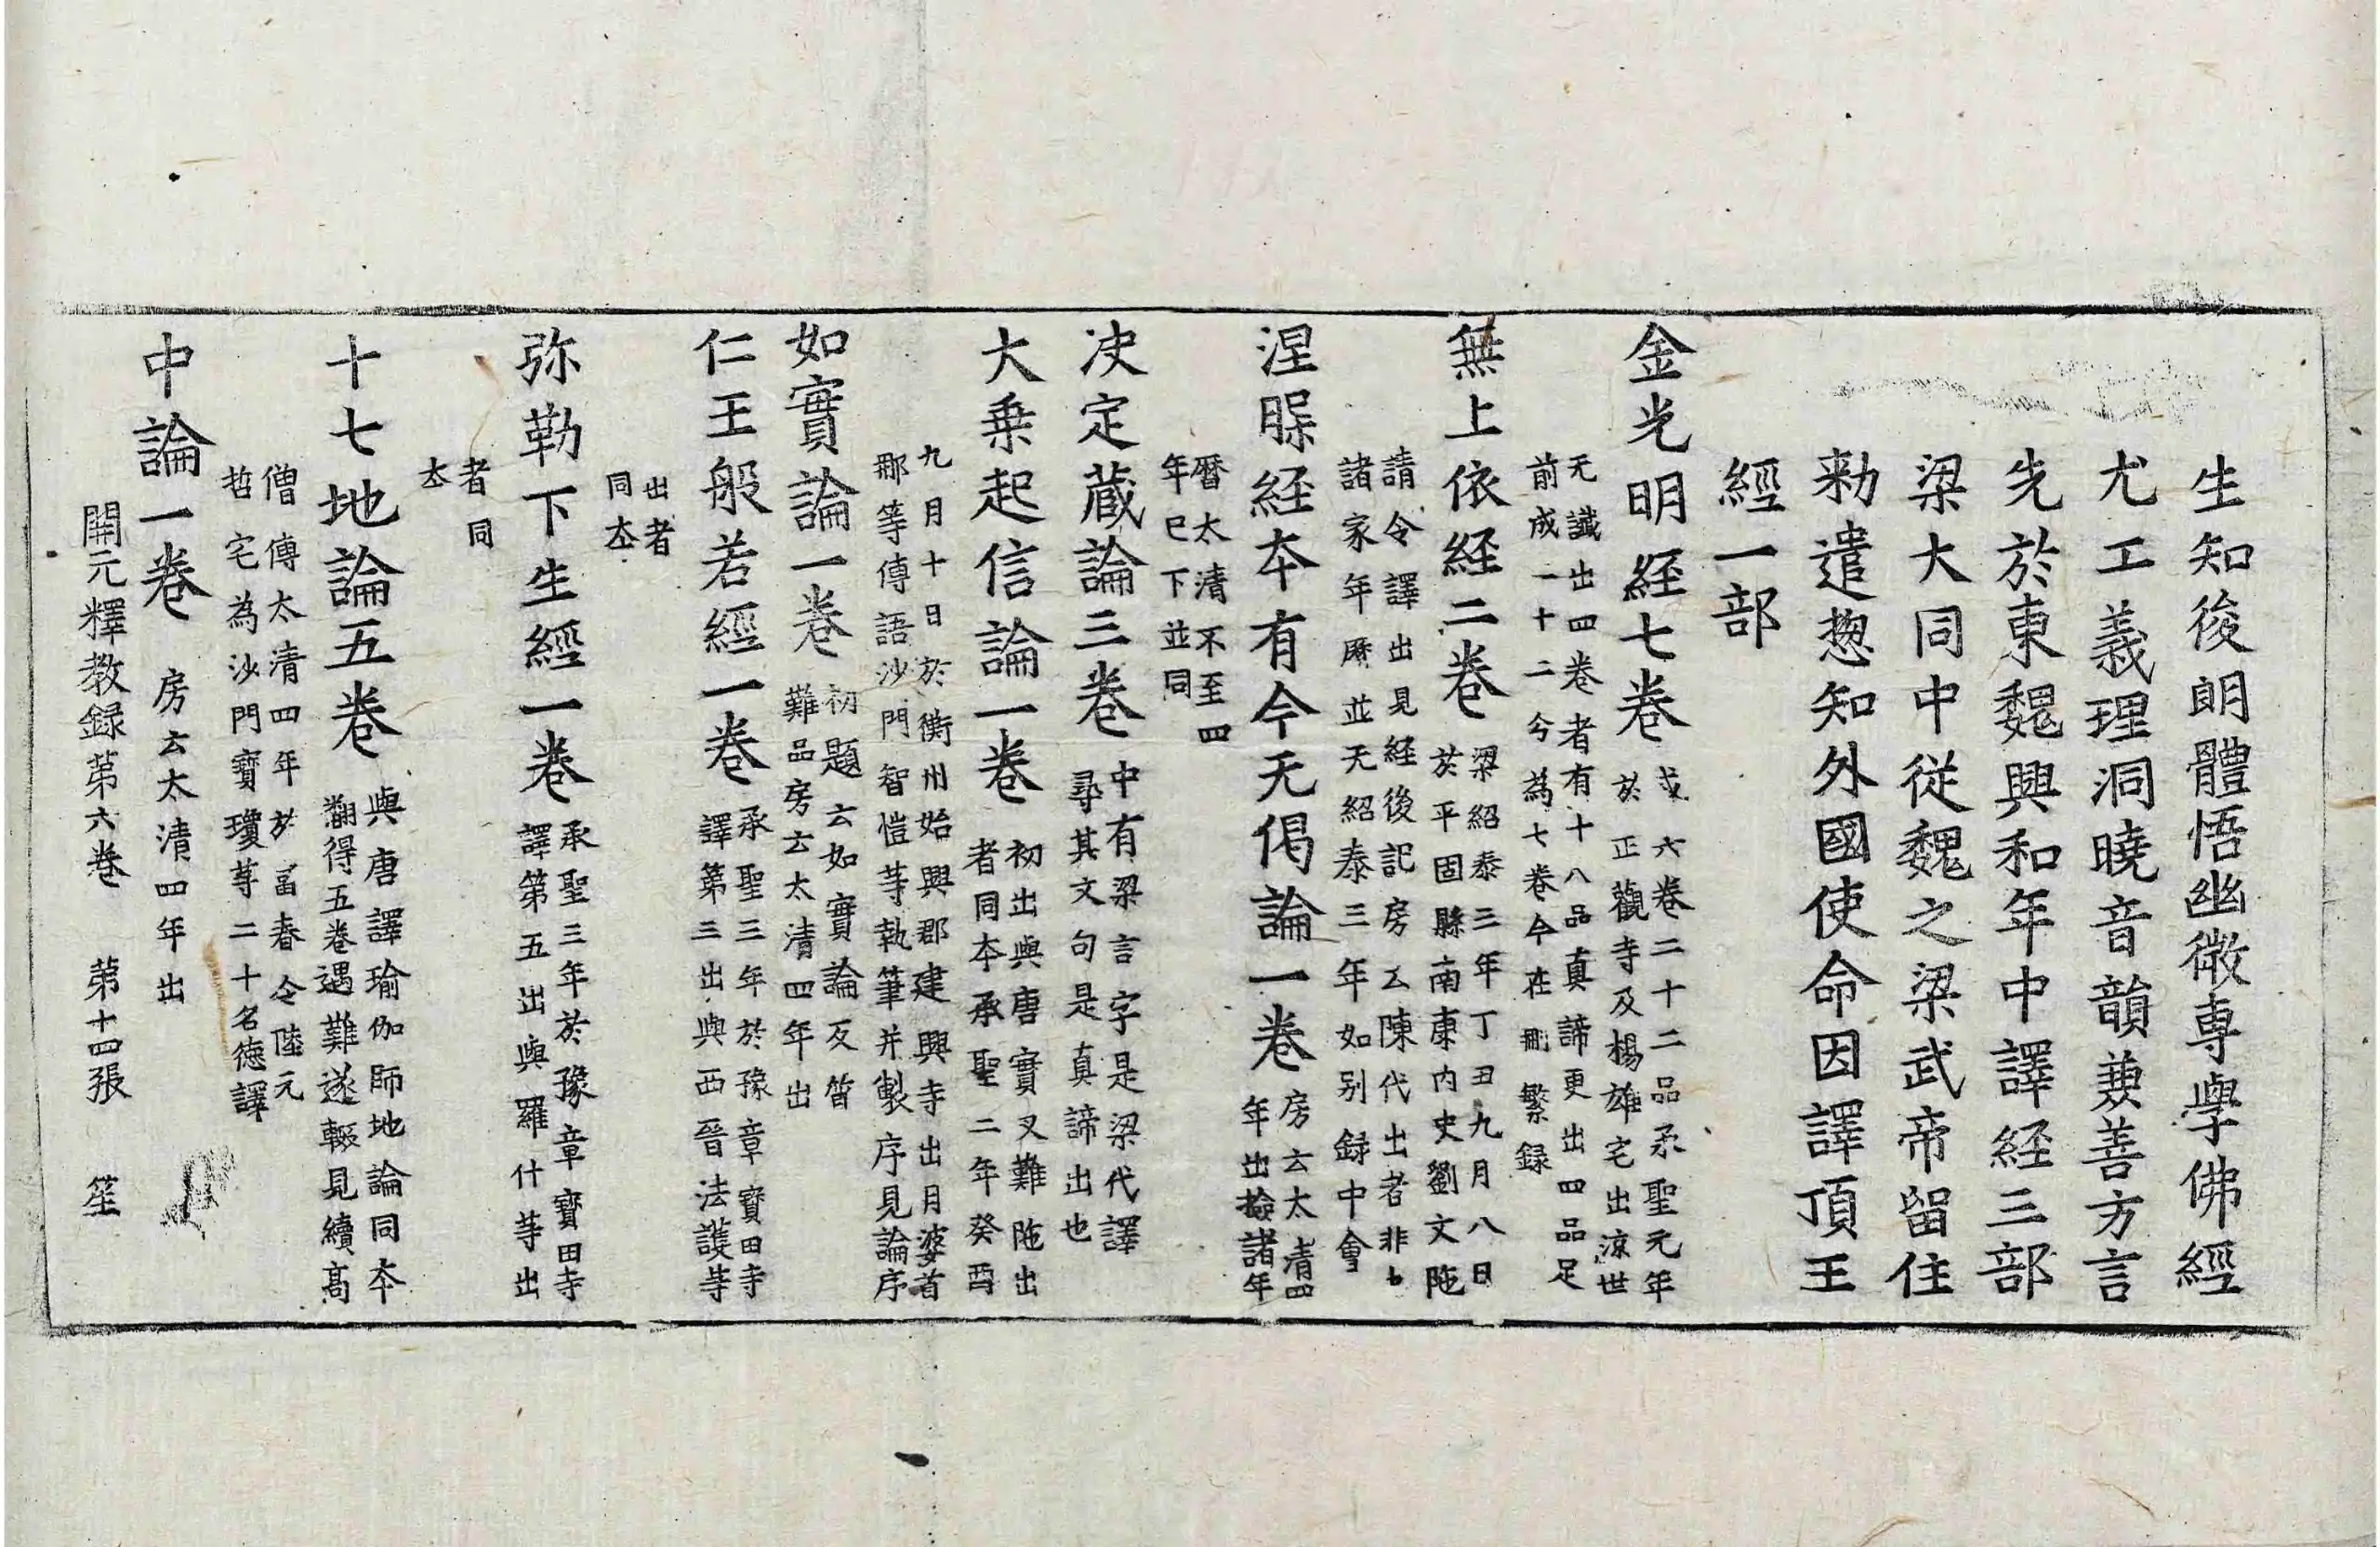 生知後朗體悟幽微専學佛經
尤工義理洞曉音韻兼善方言
先於東魏興和年中譯経三部
梁大同中從魏之梁武帝留住
勑遣揔知外國使命因譯頂王
經一部
金光明経七卷
或六卷二十二品承聖元年
於正觀寺及楊雄宅出涼世
无讖出四卷者有十八品真諦更出四品足
前成一十二今為七卷今在刪繁録
無上依経二卷
梁紹泰三年丁丑九月八日
於平固縣南康内史劉文陁
請令譯出見経後記房云陳代出者非也
諸家年曆並无紹泰三年如别録中會
涅槃経本有今无偈論一卷
房云太清四
年出撿諸年
曆太清不至四
年已下並同
决定藏論三卷
中有梁言字是梁代譯
尋其文句是真諦出也
大乗起信論一卷
初出與唐實叉難陁出
者同本承聖二年癸酉
九月十日於衡州始興郡建興寺出月婆首
那等傳語沙門智愷䓁執筆并製序見論序
如實論一卷
初題云如實論反質
難品房云太清四年出
仁王般若經一卷
承聖三年於豫章寶田寺
譯第三出與西晉法護等
出者
同本
弥勒下生經一卷
承聖三年於豫章寶田寺
譯第五出與羅什䓁出
者同
本
十七地論五卷
與唐譯瑜伽師地論同本
翻得五卷遇難遂輟見續高
僧傳太清四年於富春令陸元
哲宅為沙門寶瓊䓁二十名德譯
中論一卷
房云太清四年出
開元釋教録第六卷 第十四張 笙